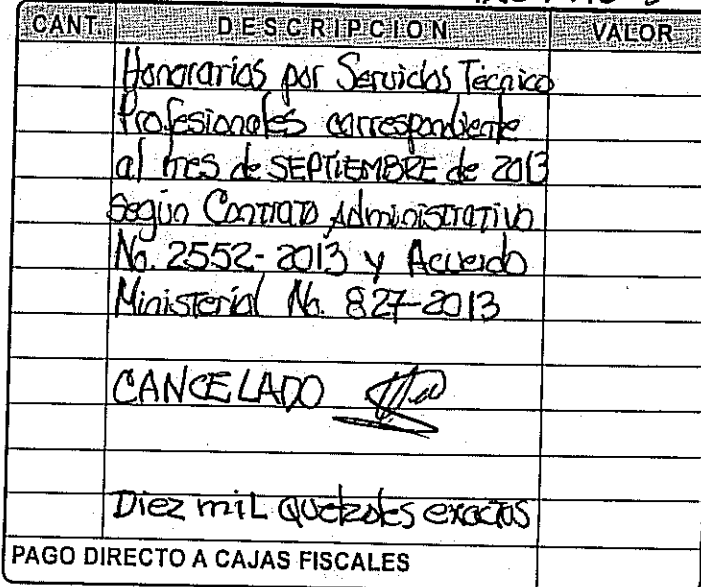 CANT. DESCRIPCION VALOR
Honorarios por Servicios Técnico
Profesionales correspondiente
al mes de SEPTIEMBRE de 2013
según Contrato Administrativo
No. 2552-2013 y Acuerdo
Ministerial No. 827-2013
CANCELADO
Diez mil quetzales exactos
PAGO DIRECTO A CAJAS FISCALES